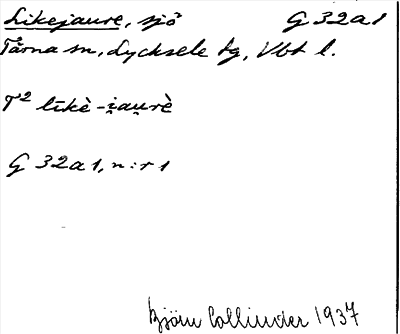 Likejaure, sjö G 32a1
Tärna sn, Lycksele lg, Vbt l.
T² līkè-i̯au̯rè
G 32a1, n:r 1
Björn Collinder 1937